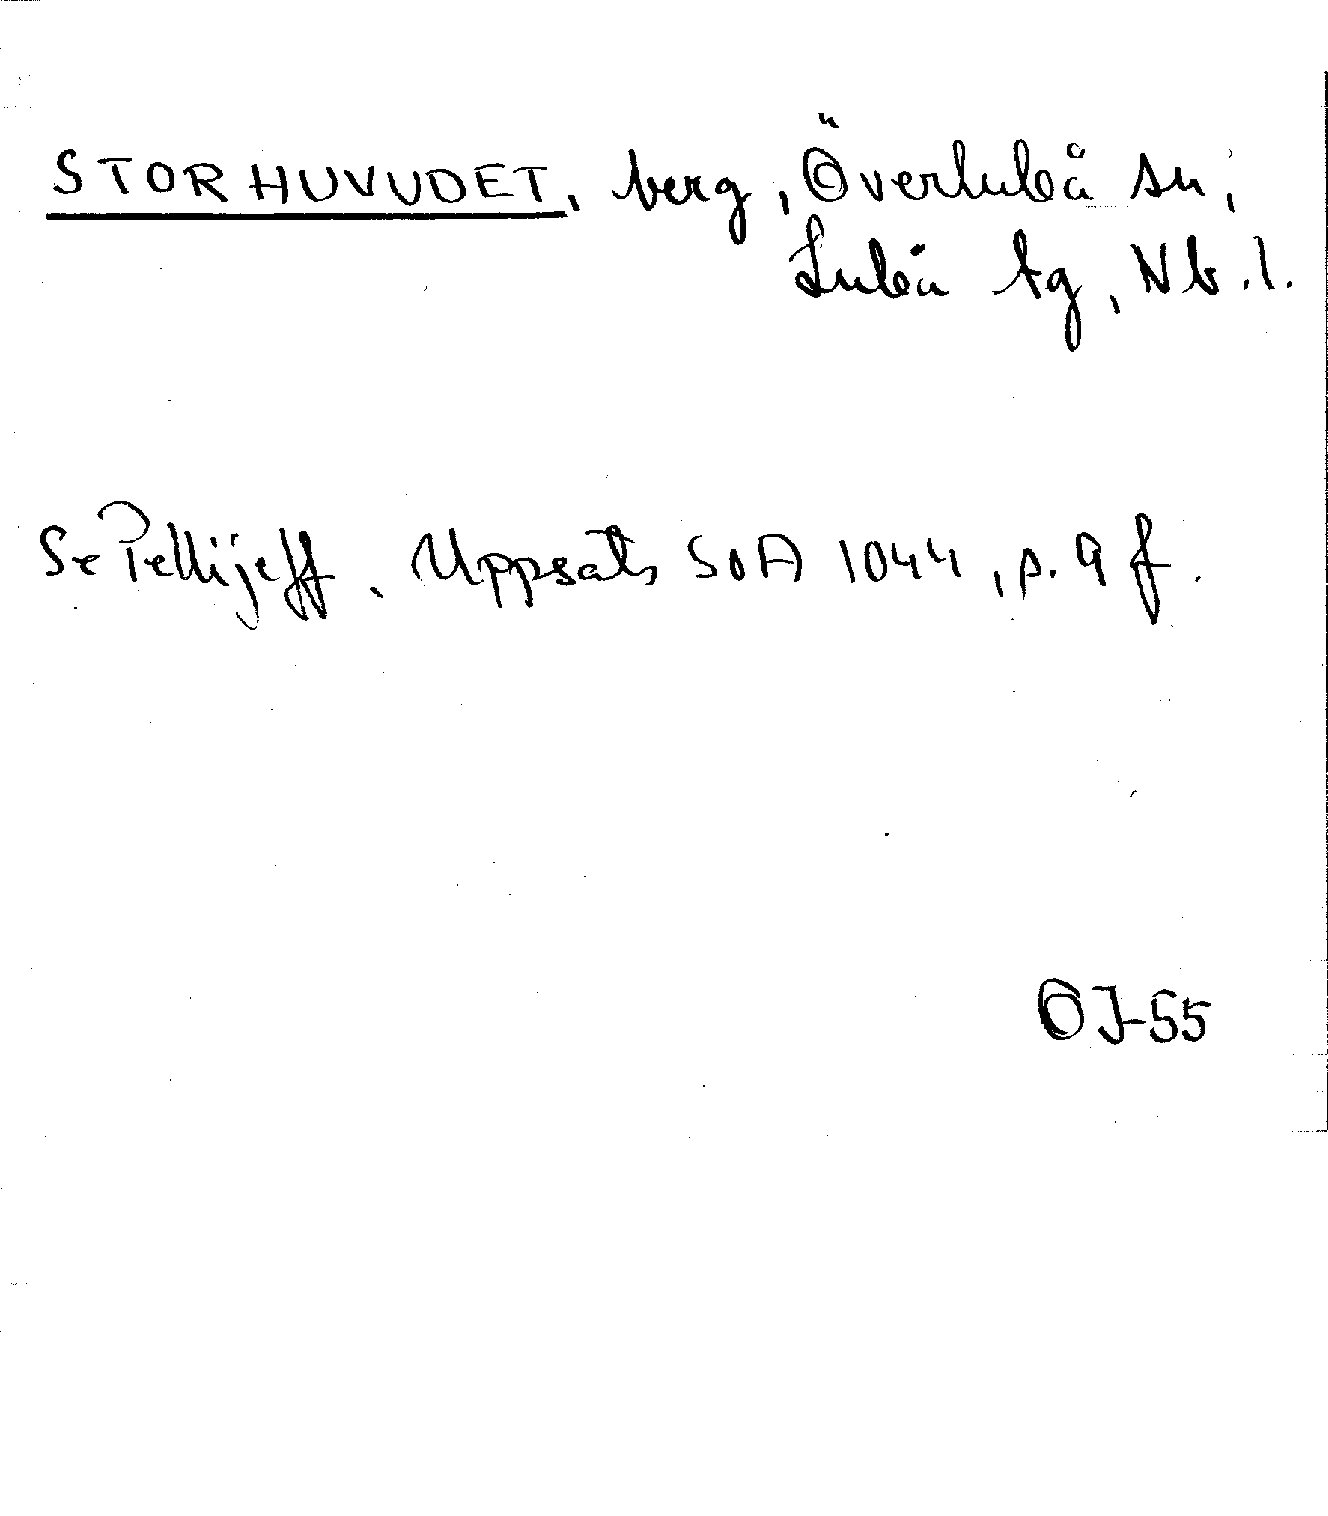 STORHUVUDET, berg, Överluleå sn,
Luleå tg, Nb.l.
Se Pellijeff, Uppsats SOA 1044, p. 9 f.
OJ-55